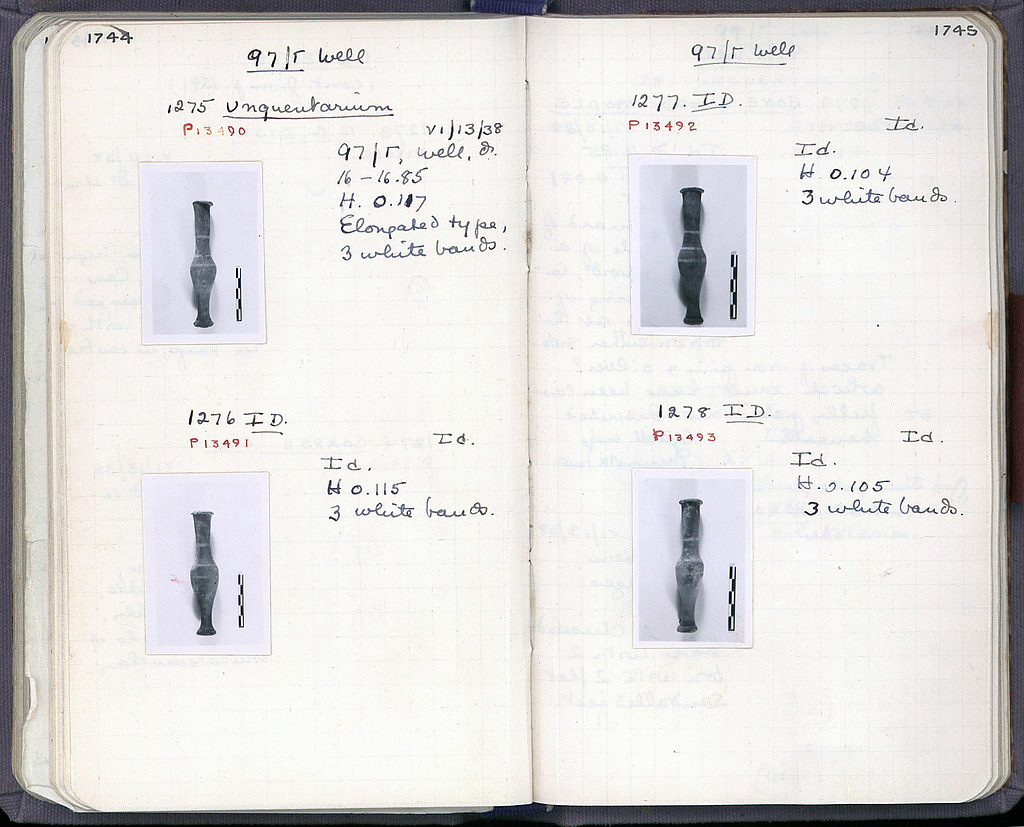 1744
97/Γ Well
1275 Unguentarium
P13490
VI/13/38
97/Γ, well, d.
16 – 16.85
H. 0.117
Elongated type,
3 white bands.
1276 ID.
P13491
Id.
Id.
H 0.115
3 white bands.
1745
97/Γ well
1277. ID.
P13492
Id.
Id.
H. 0.104
3 white bands.
1278 ID.
P13493
Id.
Id.
H. 0.105
3 white bands.